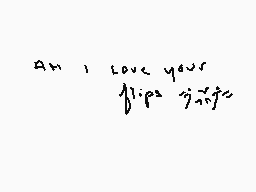 AH I LOVE your
flips